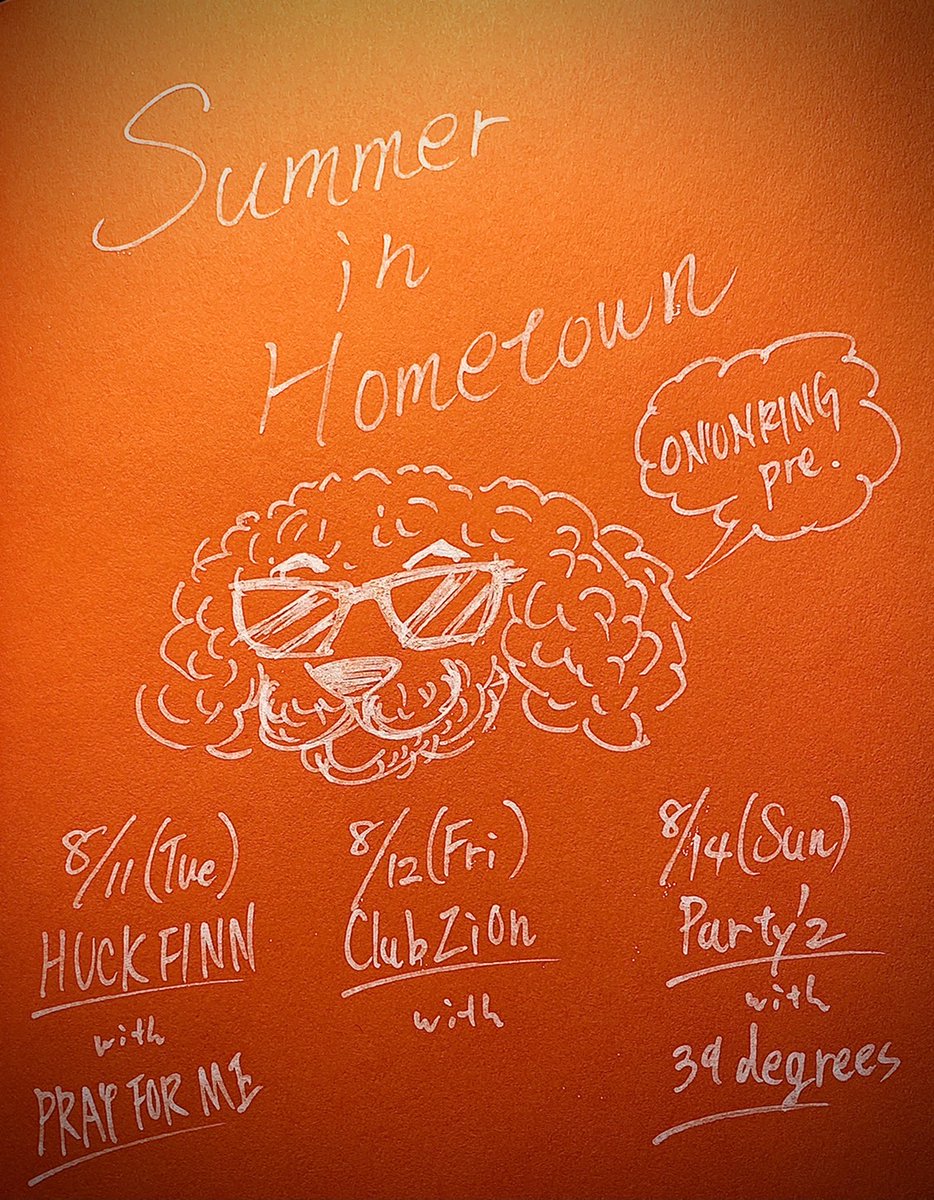 Summer
in
Hometown
ONIONRING
pre.
8/11(Tue)
HUCK FINN
with
PRAY FOR ME
8/12(Fri)
Club Zion
with
8/14(Sun)
Party'z
with
39 degrees